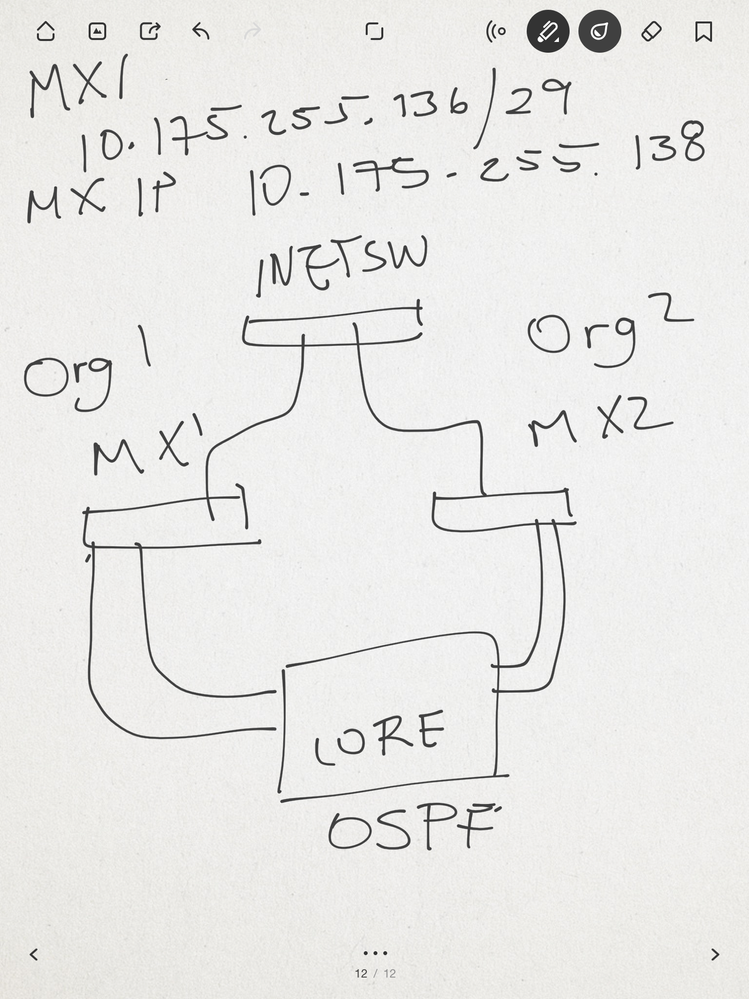 MX1
10.175.255.136/29
MX IP 10.175.255.138
INETSW
Org 1
Org 2
MX1
MX2
CORE
OSPF
12 / 12